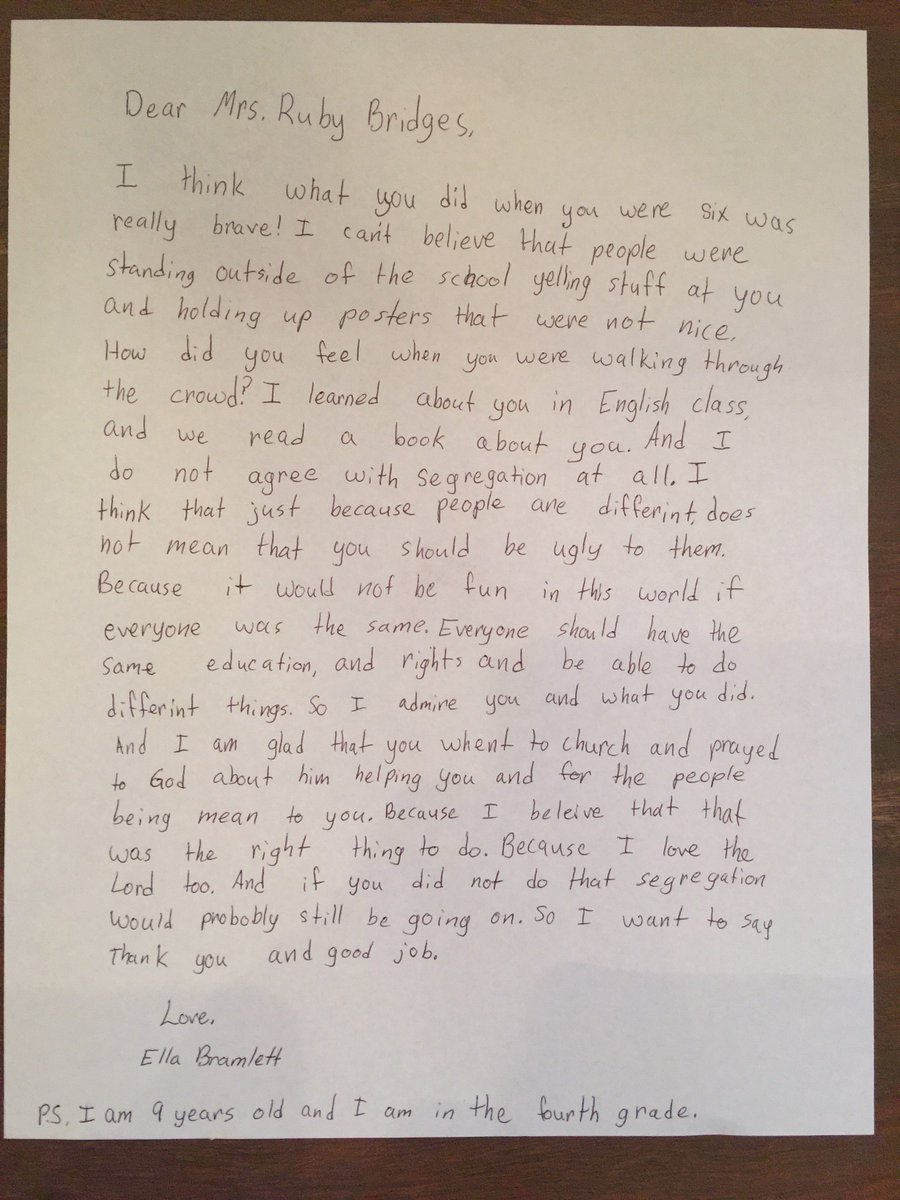 Dear Mrs. Ruby Bridges,
I think what you did when you were six was
really brave! I can't believe that people were
standing outside of the school yelling stuff at you
and holding up posters that were not nice.
How did you feel when you were walking through
the crowd? I learned about you in English class,
and we read a book about you. And I
do not agree with segregation at all. I
think that just because people are differint, does
not mean that you should be ugly to them.
Because it would not be fun in this world if
everyone was the same. Everyone should have the
same education, and rights and be able to do
differint things. So I admire you and what you did.
And I am glad that you whent to church and prayed
to God about him helping you and for the people
being mean to you. Because I beleive that that
was the right thing to do. Because I love the
Lord too. And if you did not do that segregation
would probobly still be going on. So I want to say
Thank you and good job.
Love,
Ella Bramlett
P.S. I am 9 years old and I am in the fourth grade.